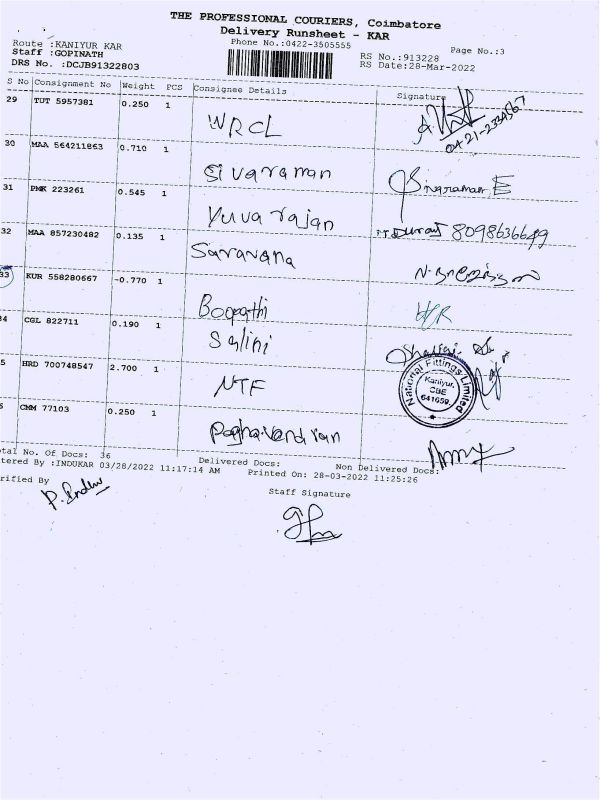 THE PROFESSIONAL COURIERS, Coimbatore
Delivery Runsheet - KAR
Phone No.:0422-3505555
Page No.:3
Route :KANIYUR KAR
Staff :GOPINATH
DRS No. :DCJB91322803
RS No.:913228
RS Date:28-Mar-2022
S No Consignment No Weight PCS Consignee Details Signature
29 TUT 5957381 0.250 1 WRCL
0421-2334567
30 MAA 564211863 0.710 1 Sivaraman Sivaraman E
31 PMK 223261 0.545 1 Yuvarajan Durai 8098636649
32 MAA 857230482 0.135 1 Saravana
33 KUR 558280667 -0.770 1 Boopathi
34 CGL 822711 0.190 1 Salini
5 HRD 700748547 2.700 1 NTF
National Fittings Limited
Kaniyur,
CBE
641659.
6 CMM 77103 0.250 1 Raghavendran
otal No. Of Docs: 36 Delivered Docs: Non Delivered Docs:
tered By :INDUKAR 03/28/2022 11:17:14 AM Printed On: 28-03-2022 11:25:26
rified By
P. Indu
Staff Signature